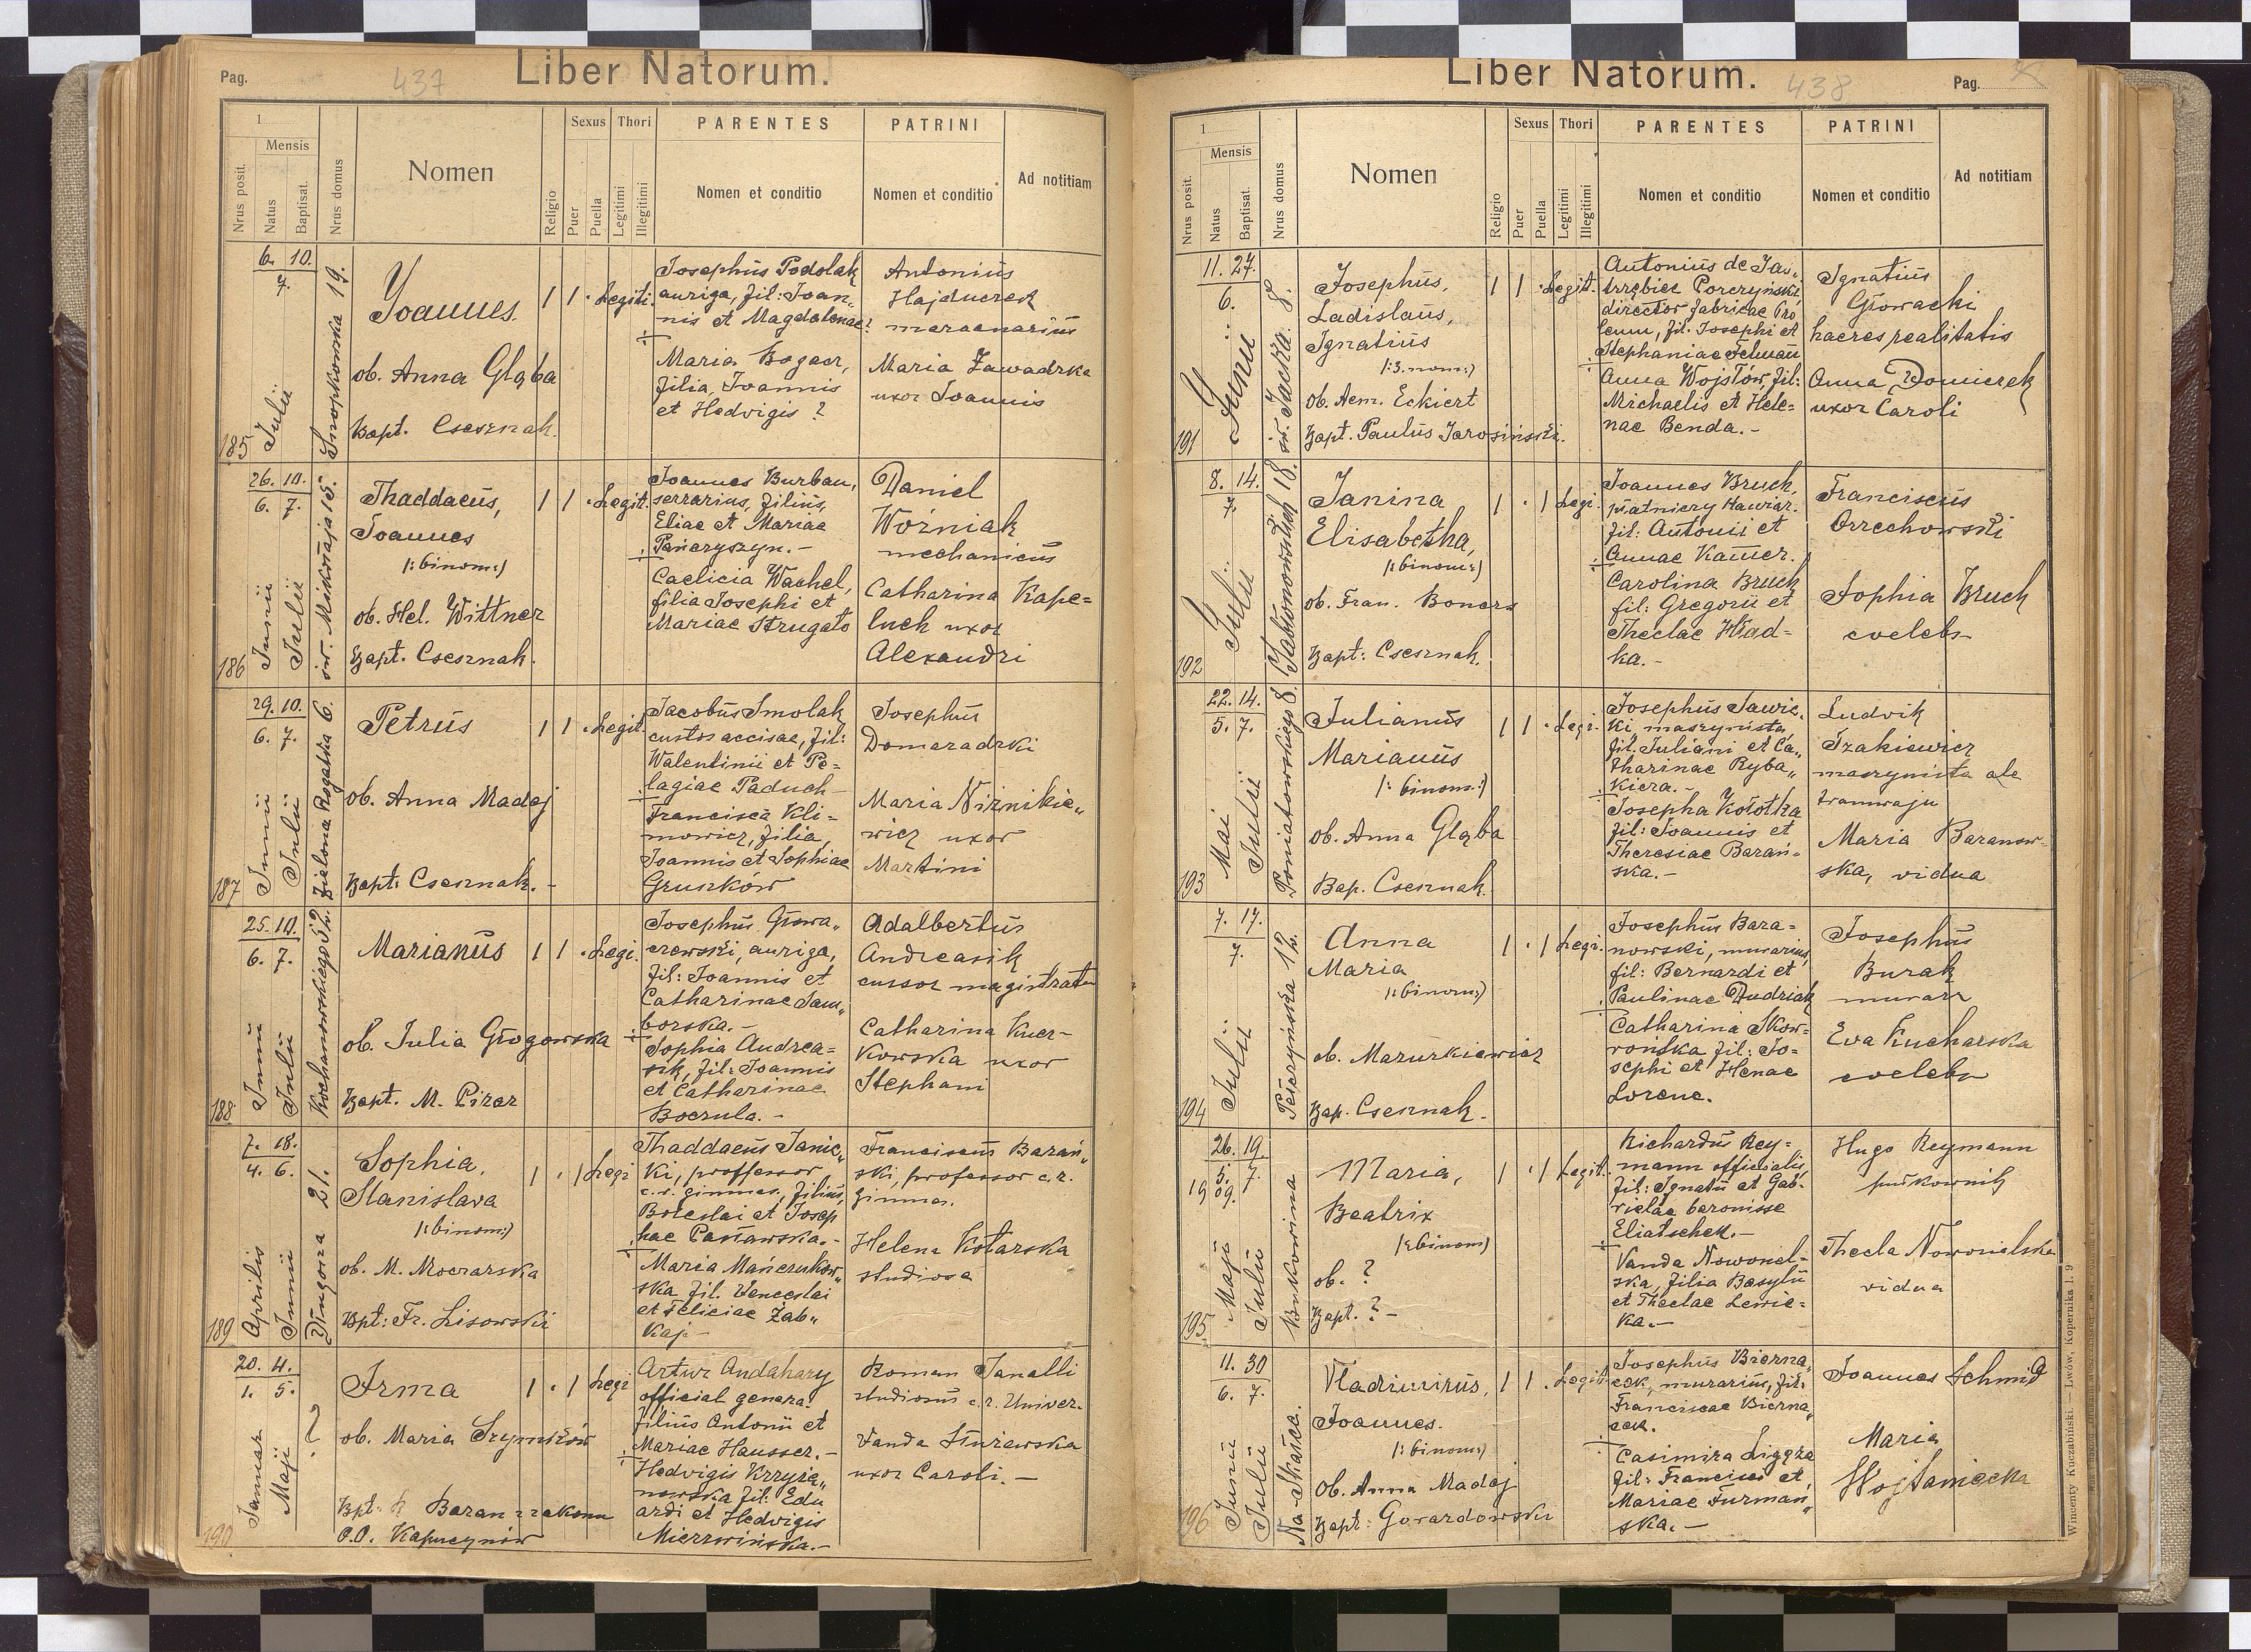 Pag.
437
Liber Natorum.
1
Mensis
Nrus posit.
Natus
Baptisat.
Nrus domus
Nomen
Religio
Sexus
Puer
Puella
Thori
Legitimi
Illegitimi
PARENTES
Nomen et conditio
PATRINI
Nomen et conditio
Ad notitiam
185
6. 10.
7.
Julii
Snopkowska 19.
Joannes.
ob. Anna Głąba
Bapt. Csesznak.
1 1 · Legiti.
Josephus Podolak
auriga, fil: Joan„
nis et Magdalenae?
Maria Bogacz,
filia, Joannis
et Hedvigis ?
Antonius
Hajduczek
Maria Zawadzka
uxor Joannis
186
26. 10.
6. 7.
Junii
Julii
św. Mikołaja 15.
Thaddaeus,
Joannes
/:binom:/
ob. Hel. Wittner
Bapt. Csesznak.
1 1 · Legit.
Joannes Burban,
serrarius, filius,
Eliae et Mariae
Pańczyszyn.-
Caelicia Wachel,
filia Josephi et
Mariae Strugato
Daniel
Woźniak
mechanicus
Catharina Kape=
luch uxor
Alexandri
187
29. 10.
6. 7.
Junii
Julii
Zielona Rogatka 6.
Petrus
ob. Anna Madej
Bapt: Csesznak.-
1 1 · Legit.
Jacobus Smolak
custos accisae, fil:
Walentinii et Pe=
lagiae Paduch-
Francisca Kli=
mowicz, filia
Joannis et Sophiae
Gruszków
Josephus
Domaradzki
Maria Niżnikie„
wicz uxor
Martini
188
25. 10.
6. 7.
Junii
Julii
Kochanowskiego
Marianus
ob. Julia Głogowska
Bapt. M. Pizar
1 1 · Legi.
Josephus Głowa„
czewski, auriga,
fil: Joannis et
Catharinae Sam„
borska.-
Sophia Andrea=
sik, fil: Joannis
et Catharinae
Boczula.-
Adalbertus
Andreasik
cursor magistratu
Catharina Kucz-
kowska uxor
Stephani
189
7. 18.
4. 6.
Aprilis
Junii
Długosza 21.
Sophia,
Stanislava
/:binom:/
ob. M. Moczarska
Bpt: Fr. Lisowski
1 · 1 Legi
Thaddaeus Janic„
ki, proffessor
c.r. gimnas, filius,
Boleslai et Josep
hae Pasławska.-
Maria Mańczukow„
ska fil. Venceslai
et Feliciae Żab„
kaj-
Franciscus Barań„
ski, professor c.r.
gimna.
Helena Kotarska
studiosa
190
20. 4.
1. 5.
Januar
Maji
?
Irma
ob. Maria Szymków
Bpt: Baran z zakonu
O.O. Kapucynów
1 · 1 Legi
Artur Andahazy
official genera.
filius Antonii et
Mariae Hausser.-
Hedvigis Krzyża„
nowska fil: Edu
ardi et Hedvigis
Mierzwińska.-
Roman Janalli
studiosus c.r. Univer.
Vanda
uxor Caroli.-
Liber Natorum.
438
Pag.
1
Mensis
Nrus posit.
Natus
Baptisat.
Nrus domus
Nomen
Religio
Sexus
Puer
Puella
Thori
Legitimi
Illegitimi
PARENTES
Nomen et conditio
PATRINI
Nomen et conditio
Ad notitiam
191
11. 27.
6.
Junii
św. Jacka. 8.
Josephus,
Ladislaus,
Ignatius
/:3. nom:/
ob. Aem. Eckiert
Bapt. Paulus Jarosiński.
1 1 · Legit.
Antonius de Jas„
trzębiec Porczyński
director fabricae
fil. Josephi et
Stephaniae
Anna Wojtów, fil:
Michaelis et Hele=
nae Benda.-
Ignatius
Głowacki
haeres realitatis
Anna Domiczek
uxor Caroli
192
8. 14.
7.
Julii
Jabłonowskich 18.
Janina
Elisabetha,
/:binom:/
ob. Fran. Bonera
Bapt: Csesznak.
1 · 1 Legi.
Joannes Bruch,
fil: Antonii et
Annae
Carolina Bruch
fil: Gregorii et
Theclae Hład=
ka.-
Franciscus
Orzechowski
Sophia Bruch
coelebs
193
22. 14.
5. 7.
Mai
Julii
Poniatowskiego 8.
Julianus
Marianus
/:binom:/
ob. Anna Głąba
Bap. Csesznak.
1 1 · Legi.
Josephus Sawic„
ki, maszynista
fil. Juliani et Ca„
tharinae Ryba„
kiera.-
Josepha Kołotka
fil: Joannis et
Theresiae Barań=
ska.-
Ludvik
maszynista ele
tramwaju
Maria Baranow-
ska, vidua
194
7. 17.
7.
Julii
12.
Anna
Maria
/:binom:/
ob. Mazurkiewicz
Bap. Csesznak.
1 · 1 Legi.
Josephus Bara=
nowski, murarius,
fil: Bernardi et
Paulinae Dudziak
Catharina Skow=
rońska fil: Jo=
sephi et Henae
Lorenc.
Josephus
Burak
murarz
Eva Kucharska
coelebs
195
26. 19.
5. 7.
1909.
Maja
Julii
Bukowina
Maria,
Beatrix
/:binom/
ob. ?
Bapt. ?-
1 · 1 Legit.
Richardus Rey=
mann officialis,
fil: Ignatii et Gab-
rielae baronisse
Eliatschek.-
Vanda Nowosiel-
ska, filia Basylii
et Theclae Lewic=
ka.-
Hugo Reymann
pułkownik
Thecla Nowosielska
vidua
196
11. 30
6. 7.
Junii
Julii
Na-Skałce.
Vladimirus,
Joannes.
/:binom:/
Ob. Anna Madej
Bapt: Gorazdowski
1 1 · Legit.
Josephus Bierna„
cek, murarius, fil:
Franciscae Bierna„
cek.
Casimira Ligęza
fil: Francisci et
Mariae Furmań„
ska.-
Joannes Schmid
Maria
Wojtanicka
Wincenty Kuczabiński. — Lwów, Kopernika l. 9